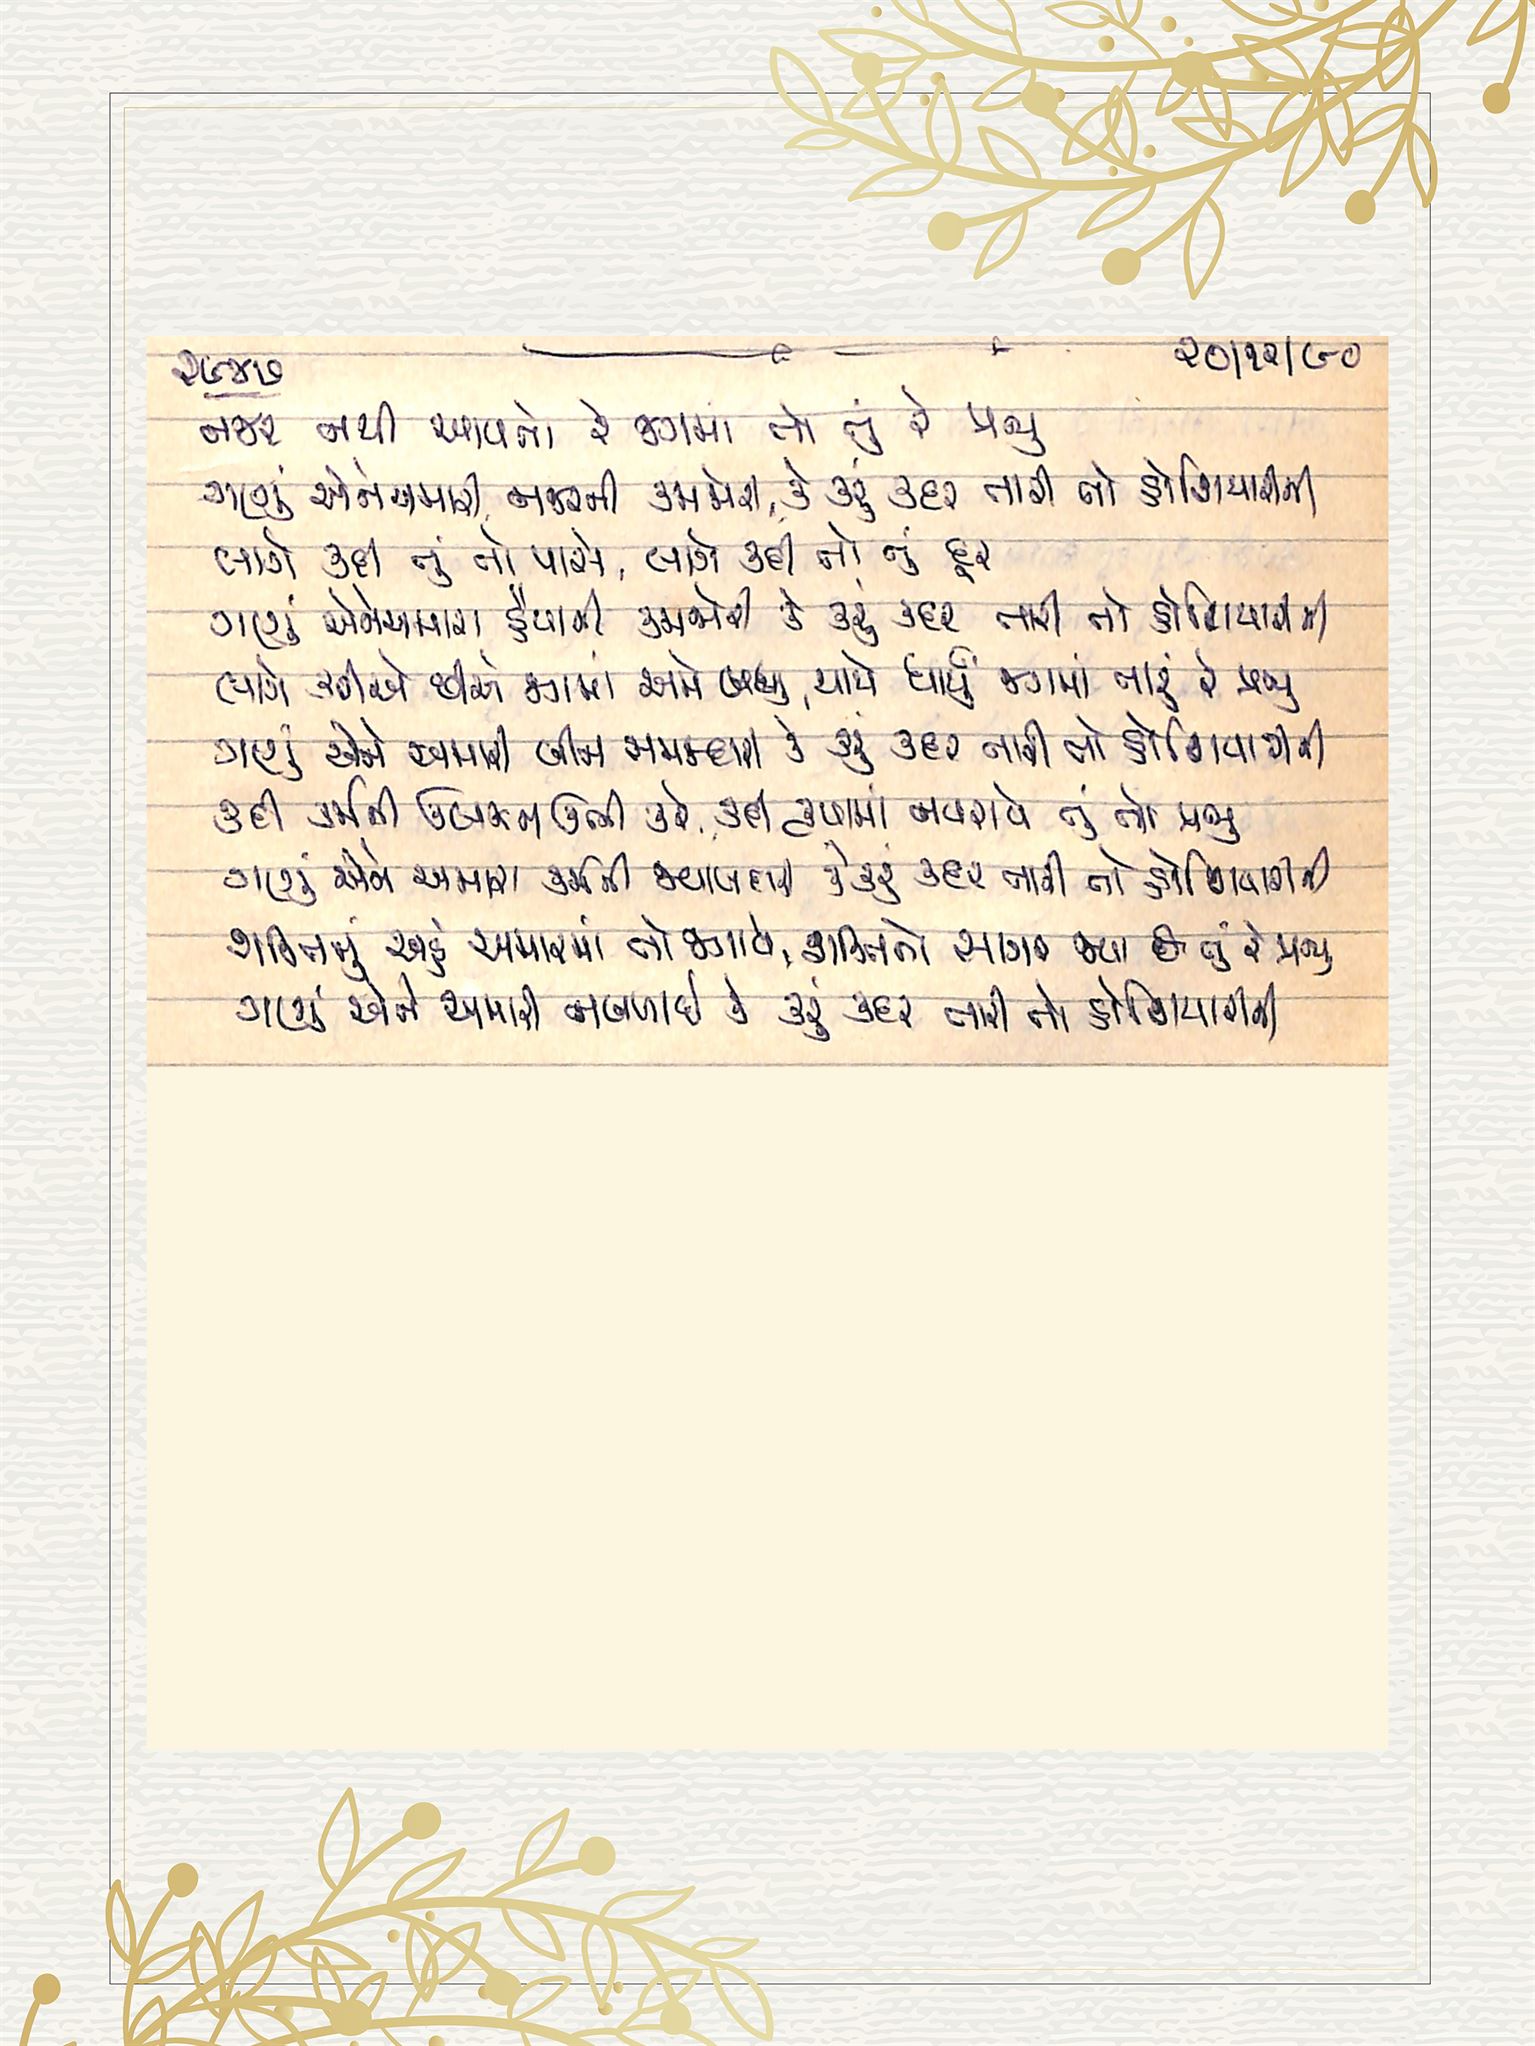 ૨૯૪૭
૨૦/૧૨/૯૦
નજર નથી આવતો રે જગમાં તો તું રે પ્રભુ
ગણું એને અમારી નજરની કમજોરી, કે કરું કદર તારી તો હોશિયારીની
લાગે કદી તું તો પાસે, લાગે કદી તો તું દૂર
ગણું એને અમારા હૈયાની કમજોરી કે કરું કદર તારી તો હોશિયારીની
લાગે કરીએ છીએ જગમાં અમે બધું, થાયે ધાર્યું જગમાં તારું રે પ્રભુ
ગણું એને અમારી બીન સમજદારી કે કરું કદર તારી તો હોશિયારીની
કદી કર્મની ઉભી કરે, કદી કૃપામાં નવરાવે તું તો પ્રભુ
ગણું એને અમારા કર્મની કે કરું કદર તારી તો હોશિયારીની
શક્તિનું અહં અમારામાં તો જગાવે, શક્તિનો સાગર જ્યાં છે તું રે પ્રભુ
ગણું એને અમારી નબળાઈ કે કરું કદર તારી તો હોશિયારીની